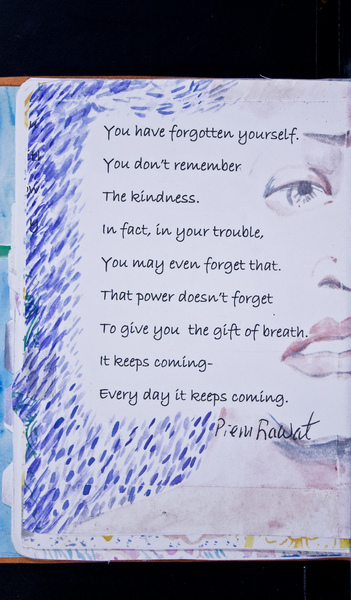 You have forgotten yourself.
You don't remember
The kindness.
In fact, in your trouble,
You may even forget that.
That power doesn't forget
To give you the gift of breath.
It keeps coming-
Every day it keeps coming.
Prem Rawat